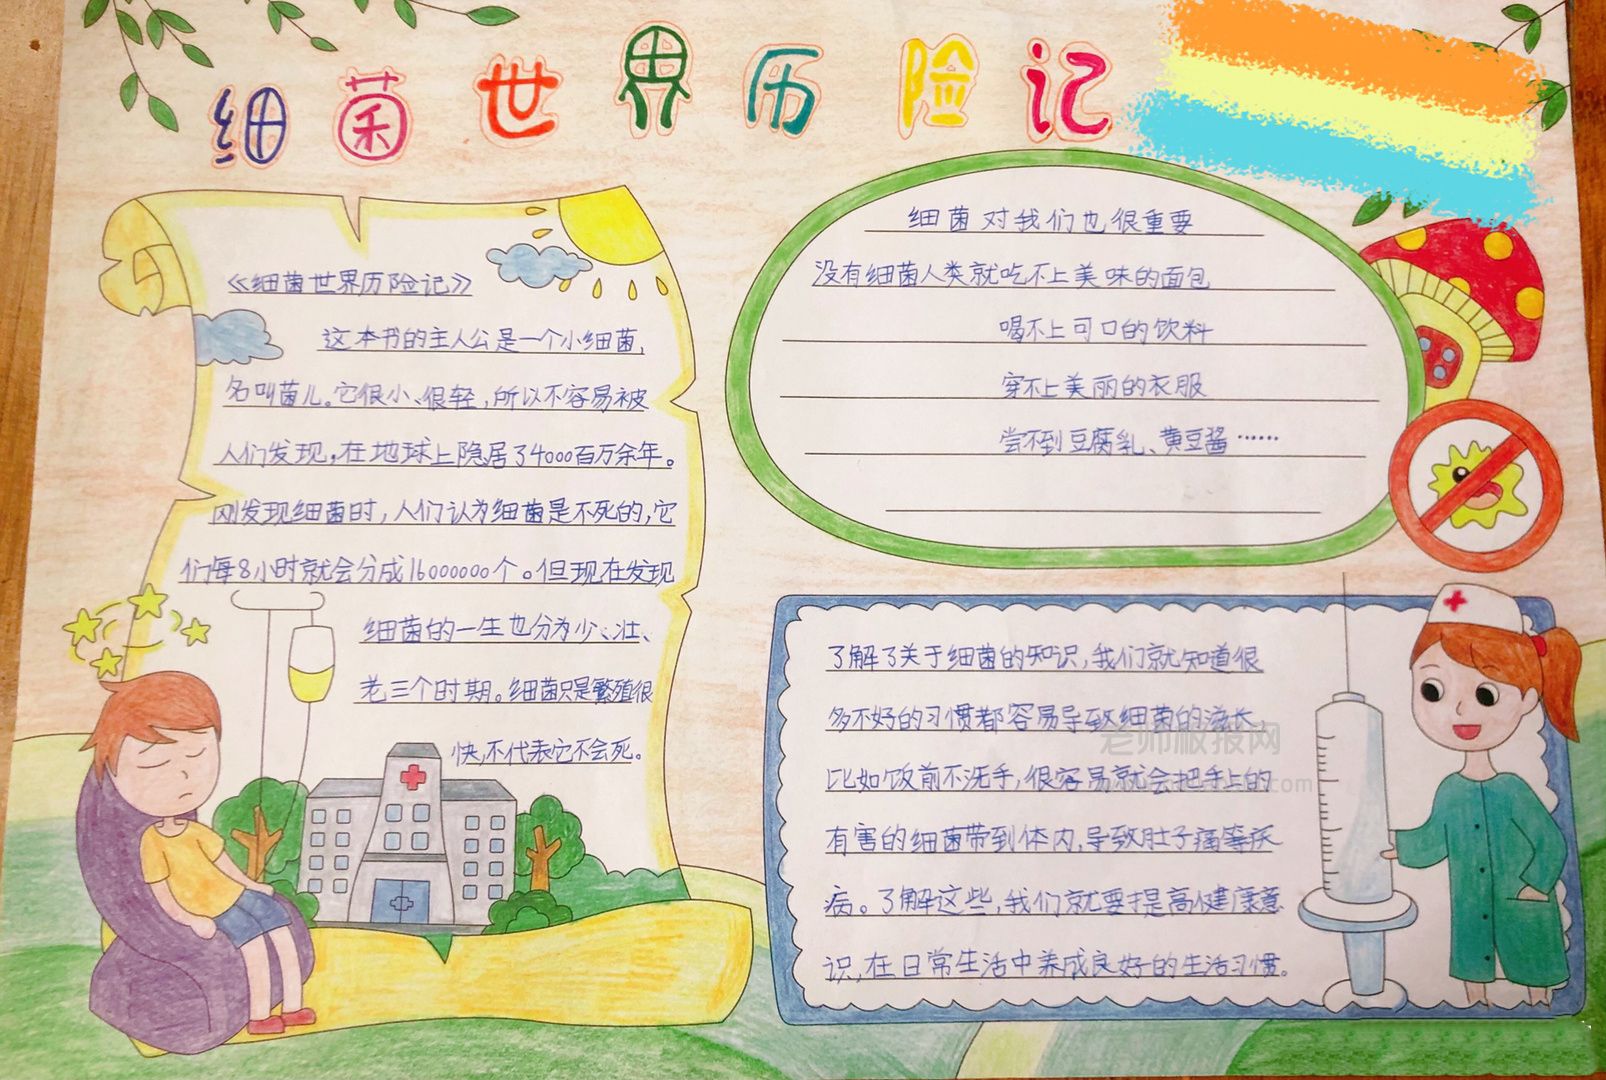 细菌世界历险记
《细菌世界历险记》
这本书的主人公是一个小细菌,
名叫菌儿。它很小、很轻,所以不容易被
人们发现,在地球上隐居了4000百万余年。
刚发现细菌时,人们认为细菌是不死的,它
们每8小时就会分成16000000个。但现在发现
细菌的一生也分为少、壮、
老三个时期。细菌只是繁殖很
快,不代表它不会死。
细菌对我们也很重要
没有细菌人类就吃不上美味的面包
喝不上可口的饮料
穿不上美丽的衣服
尝不到豆腐乳、黄豆酱……
了解了关于细菌的知识,我们就知道很
多不好的习惯都容易导致细菌的滋长
比如饭前不洗手,很容易就会把手上的
有害的细菌带到体内,导致肚子痛等疾
病。了解这些,我们就要提高健康意
识,在日常生活中养成良好的生活习惯。
老师板报网